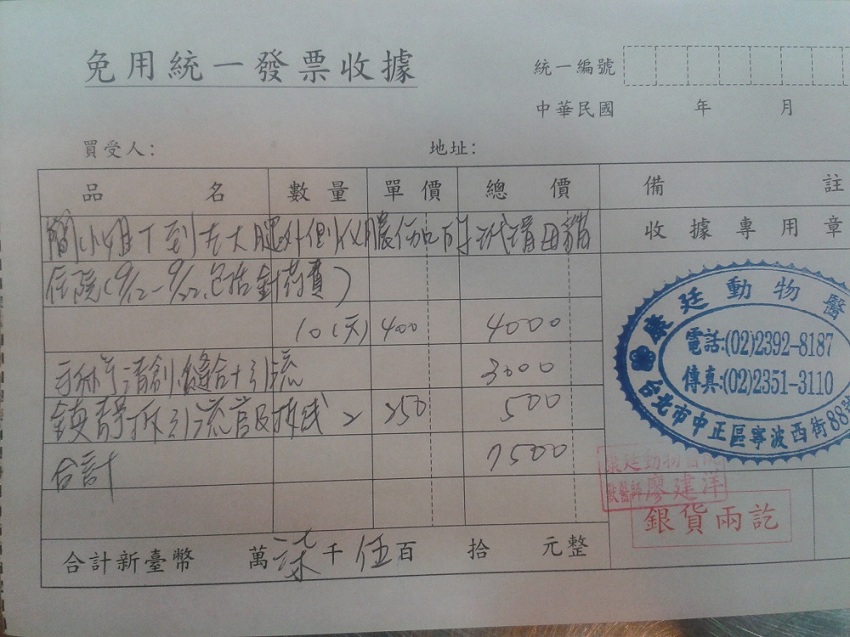 免用統一發票收據
統一編號
中華民國 年 月
買受人: 地址:
品名 數量 單價 總價 備註
收據專用章
住院(9/12-9/22,包括針藥費)
10(天) 400 4000
手術清創,縫合+引流 3000
鎮靜拆引流管及拆線 2 250 500
合計 7500
合計新臺幣 萬柒千伍百 拾 元整
康廷動物醫
電話:(02)2392-8187
傳真:(02)2351-3110
台北市中正區寧波西街88號
康廷動物醫院
獸醫師廖建洋
銀貨兩訖